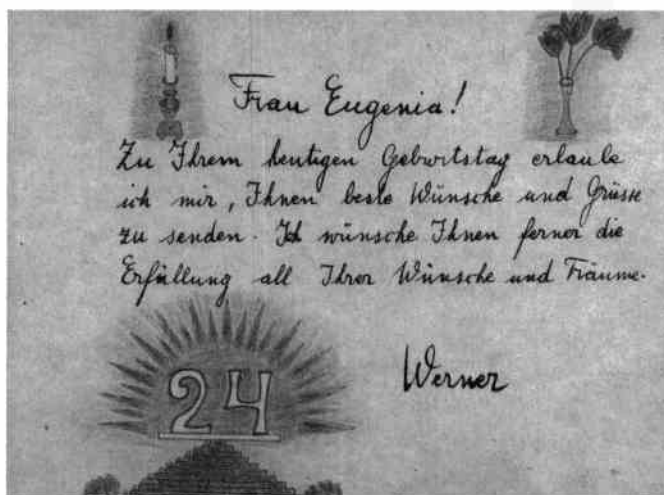 Frau Eugenia!
Zu Ihrem heutigen Geburtstag erlaube
ich mir, Ihnen beste Wünsche und Grüsse
zu senden. Ich wünsche Ihnen ferner die
Erfüllung all Ihrer Wünsche und Träume.
Werner
24